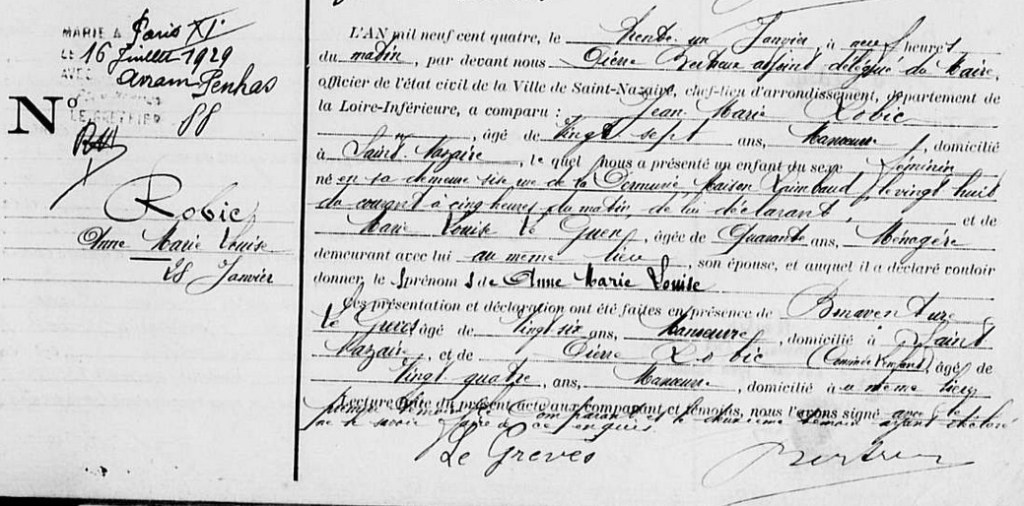 MARIÉ A Paris XI
LE 16 Juillet 1929
AVEC Avram Penhas
LE GREFFIER
N° 88
Robic
Anne Marie Louise
28 Janvier
L'AN mil neuf cent quatre, le trente un Janvier, à neuf heures
du matin, par devant nous Pierre adjoint délégué du Maire,
officier de l'état civil de la Ville de Saint-Nazaire, chef-lieu d'arrondissement, département de
la Loire-Inférieure, a comparu : Jean Marie Robic
, âgé de vingt sept ans, Manœuvre, domicilié
à Saint Nazaire, le quel nous a présenté un enfant du sexe féminin
né en sa demeure sise rue de la Maison Raimbaud, le vingt huit
du courant à cinq heures du matin, de lui déclarant, et de
Marie Louise Le Guen, âgée de Quarante ans, Ménagère
demeurant avec lui au même lieu, son épouse, et auquel il a déclaré vouloir
donner le s prénom s de Anne Marie Louise
Ces présentation et déclaration ont été faites en présence de Bonaventure
Le âgé de vingt six ans, Manœuvre, domicilié à Saint
Nazaire, et de Pierre Robic, âgé de
vingt quatre, ans, Manœuvre, domicilié au même lieu
Lecture faite du présent acte aux comparant et témoins, nous l'avons signé avec le
premier témoin le comparant et le deuxième témoin ayant déclaré
ne le savoir faire de ce enquis.
Le Greves